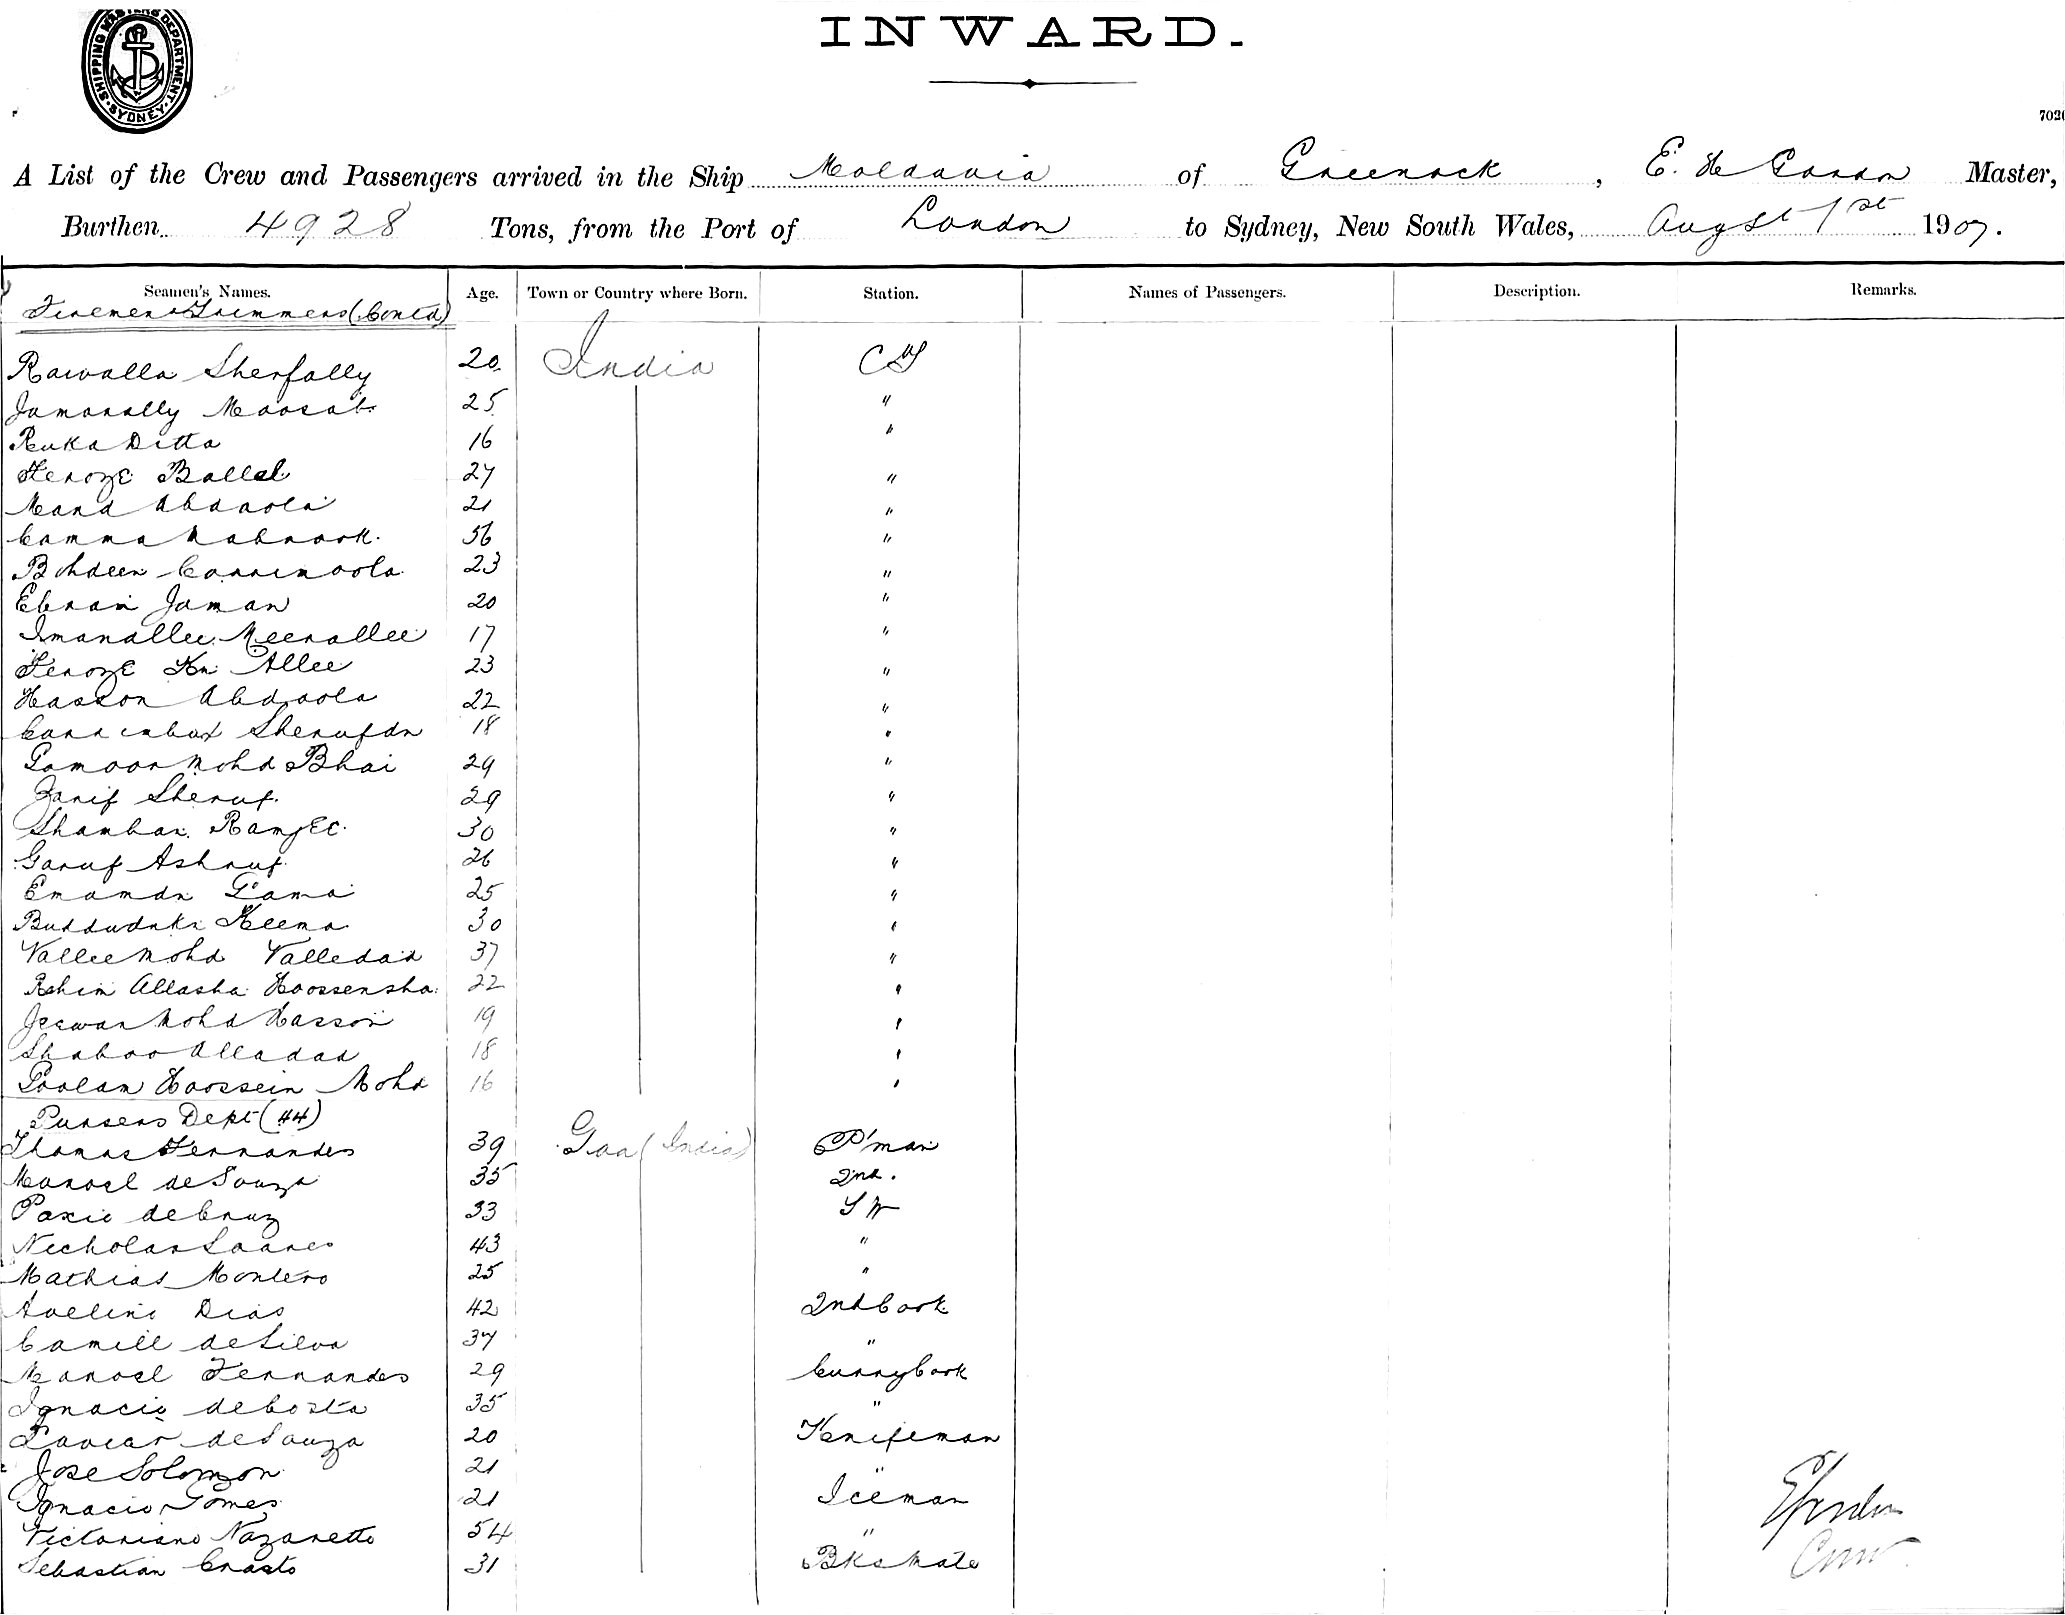 SHIPPING MASTERS DEPARTMENT. SYDNEY
INWARD.
702
A List of the Crew and Passengers arrived in the Ship Moldavia of Greenock, E. H Gordon Master,
Burthen 4928 Tons, from the Port of London to Sydney, New South Wales, Augst 1st 1907.
Seamen's Names. Age. Town or Country where Born. Station. Names of Passengers. Description. Remarks.
Firemen & Trimmers (Contd)
Rawalla Sherfally 20 India CT
Jumanally Moosab 25 "
Ruka Ditta 16 "
Feroze Ballal 27 "
Mand Abdoola 21 "
Comma Mabrook. 56 "
Bohdeen Carrimoola 23 "
Ebram Jaman 20 "
Imanallee Meerallee 17 "
Feroze Kn Allee 23 "
Hasson Abdoola 22 "
Carrimbux Sherufdn 18 "
Gamoor Mohd Bhai 29 "
Zarif Sheruf. 29 "
Shamban Ramjee. 30 "
Garuf Ashruf 26 "
Emamdn Gama 25 "
Buddudnki Keema 30 "
Vallee Mohd Valledad 37 "
Rehim Allasha Hoossensha 22 "
Jeewan Mohd Hasson 19 "
Shaboo Alladad 18 "
Goolam Hoossein Mohd 16 "
Pursers Dept (44)
Thomas Fernandes 39 Goa (India) P'man
Manoel de Souza 35 2nd.
Paxie de Cruz 33 SW
Necholas Soares 43 "
Mathias Montero 25 "
Avelino Dias 42 2nd Cook
Camill de Silva 37 "
Manoel Fernandes 29 Curry Cook
Ignacio de Costa 35 "
Xavier de Souza 20 Knifeman
Jose Solomon 21 "
Ignacio Gomes 21 Iceman
Victoriano Nazaretto 54 "
Sebastian Crasto 31 Bks Mate